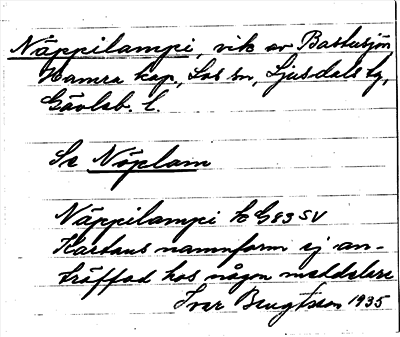 Näppilampi, vik av Bastusjön
Hamra kap., Los sn, Ljusdals tg,
Gävleb. l.
Se Nöplam
Näppilampi k G83 SV
Kartans namnform ej an-
träffad hos någon meddelare
Ivar Bengtsson 1935